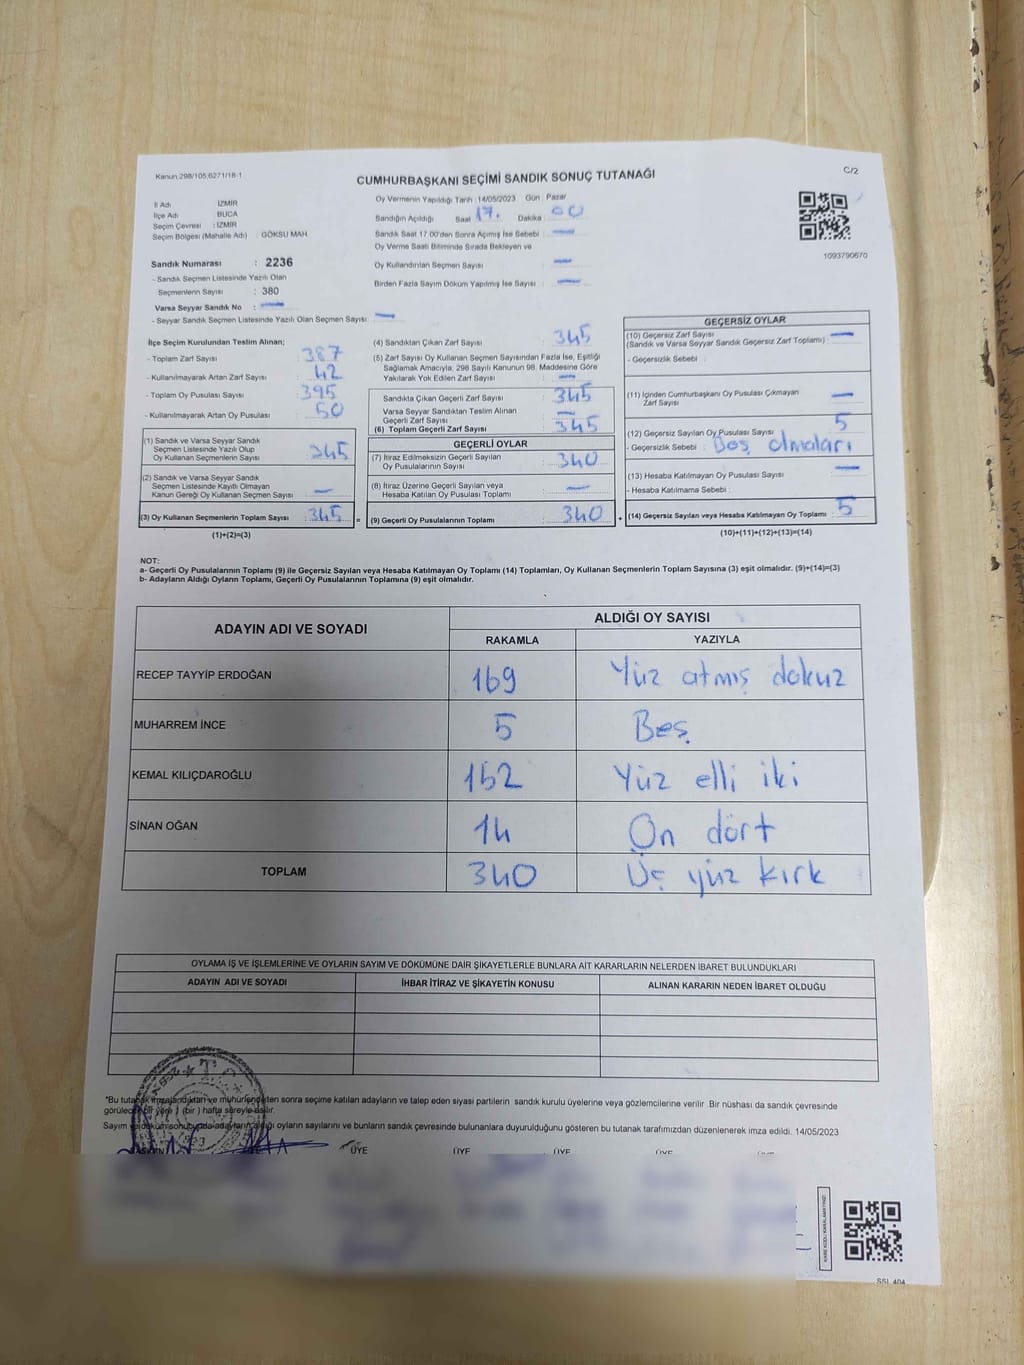 Kanun:298/105,6271/18-1
CUMHURBAŞKANI SEÇİMİ SANDIK SONUÇ TUTANAĞI
C/2
İl Adı : İZMİR
İlçe Adı : BUCA
Seçim Çevresi : İZMİR
Seçim Bölgesi (Mahalle Adı) : GÖKSU MAH.
Sandık Numarası : 2236
- Sandık Seçmen Listesinde Yazılı Olan
Seçmenlerin Sayısı : 380
Varsa Seyyar Sandık No : —
- Seyyar Sandık Seçmen Listesinde Yazılı Olan Seçmen Sayısı: —
Oy Vermenin Yapıldığı Tarih : 14/05/2023 Gün : Pazar
Sandığın Açıldığı Saat : 17. Dakika : 00
Sandık Saat 17.00'den Sonra Açılmış İse Sebebi : —
Oy Verme Saati Bitiminde Sırada Bekleyen ve
Oy Kullandırılan Seçmen Sayısı : —
Birden Fazla Sayım Döküm Yapılmış İse Sayısı : —
1093790670
İlçe Seçim Kurulundan Teslim Alınan;
- Toplam Zarf Sayısı : 387
- Kullanılmayarak Artan Zarf Sayısı : 42
- Toplam Oy Pusulası Sayısı : 395
- Kullanılmayarak Artan Oy Pusulası : 50
(1) Sandık ve Varsa Seyyar Sandık
Seçmen Listesinde Yazılı Olup
Oy Kullanan Seçmenlerin Sayısı : 345
(2) Sandık ve Varsa Seyyar Sandık
Seçmen Listesinde Kayıtlı Olmayan
Kanun Gereği Oy Kullanan Seçmen Sayısı : —
(3) Oy Kullanan Seçmenlerin Toplam Sayısı : 345
(1)+(2)=(3)
(4) Sandıktan Çıkan Zarf Sayısı : 345
(5) Zarf Sayısı Oy Kullanan Seçmen Sayısından Fazla İse, Eşitliği
Sağlamak Amacıyla, 298 Sayılı Kanunun 98. Maddesine Göre
Yakılarak Yok Edilen Zarf Sayısı : —
Sandıkta Çıkan Geçerli Zarf Sayısı : 345
Varsa Seyyar Sandıktan Teslim Alınan
Geçerli Zarf Sayısı : —
(6) Toplam Geçerli Zarf Sayısı : 345
GEÇERLİ OYLAR
(7) İtiraz Edilmeksizin Geçerli Sayılan
Oy Pusulalarının Sayısı : 340
(8) İtiraz Üzerine Geçerli Sayılan veya
Hesaba Katılan Oy Pusulası Toplamı : —
= (9) Geçerli Oy Pusulalarının Toplamı : 340
GEÇERSİZ OYLAR
(10) Geçersiz Zarf Sayısı
(Sandık ve Varsa Seyyar Sandık Geçersiz Zarf Toplamı) : —
- Geçersizlik Sebebi :
(11) İçinden Cumhurbaşkanı Oy Pusulası Çıkmayan
Zarf Sayısı : —
(12) Geçersiz Sayılan Oy Pusulası Sayısı : 5
- Geçersizlik Sebebi : Boş olmaları
(13) Hesaba Katılmayan Oy Pusulası Sayısı : —
- Hesaba Katılmama Sebebi :
+ (14) Geçersiz Sayılan veya Hesaba Katılmayan Oy Toplamı : 5
(10)+(11)+(12)+(13)=(14)
NOT:
a- Geçerli Oy Pusulalarının Toplamı (9) ile Geçersiz Sayılan veya Hesaba Katılmayan Oy Toplamı (14) Toplamları, Oy Kullanan Seçmenlerin Toplam Sayısına (3) eşit olmalıdır. (9)+(14)=(3)
b- Adayların Aldığı Oyların Toplamı, Geçerli Oy Pusulalarının Toplamına (9) eşit olmalıdır.
ADAYIN ADI VE SOYADI ALDIĞI OY SAYISI
RAKAMLA YAZIYLA
RECEP TAYYİP ERDOĞAN 169 Yüz atmış dokuz
MUHARREM İNCE 5 Beş
KEMAL KILIÇDAROĞLU 152 Yüz elli iki
SİNAN OĞAN 14 On dört
TOPLAM 340 Üç yüz kırk
OYLAMA İŞ VE İŞLEMLERİNE VE OYLARIN SAYIM VE DÖKÜMÜNE DAİR ŞİKAYETLERLE BUNLARA AİT KARARLARIN NELERDEN İBARET BULUNDUKLARI
ADAYIN ADI VE SOYADI İHBAR İTİRAZ VE ŞİKAYETİN KONUSU ALINAN KARARIN NEDEN İBARET OLDUĞU
"Bu tutanak imzalandıktan ve mühürlendikten sonra seçime katılan adayların ve talep eden siyasi partilerin sandık kurulu üyelerine veya gözlemcilerine verilir .Bir nüshası da sandık çevresinde
görülecek bir yere 1 (bir) hafta süreyle asılır.
Sayım ve döküm sonucuda adayların aldığı oyların sayılarını ve bunların sandık çevresinde bulunanlara duyurulduğunu gösteren bu tutanak tarafımızdan düzenlenerek imza edildi. 14/05/2023
BAŞKAN ÜYE ÜYE ÜYE ÜYE ÜYE
KARE KODU KARALAMAYINIZ!
SSL 404